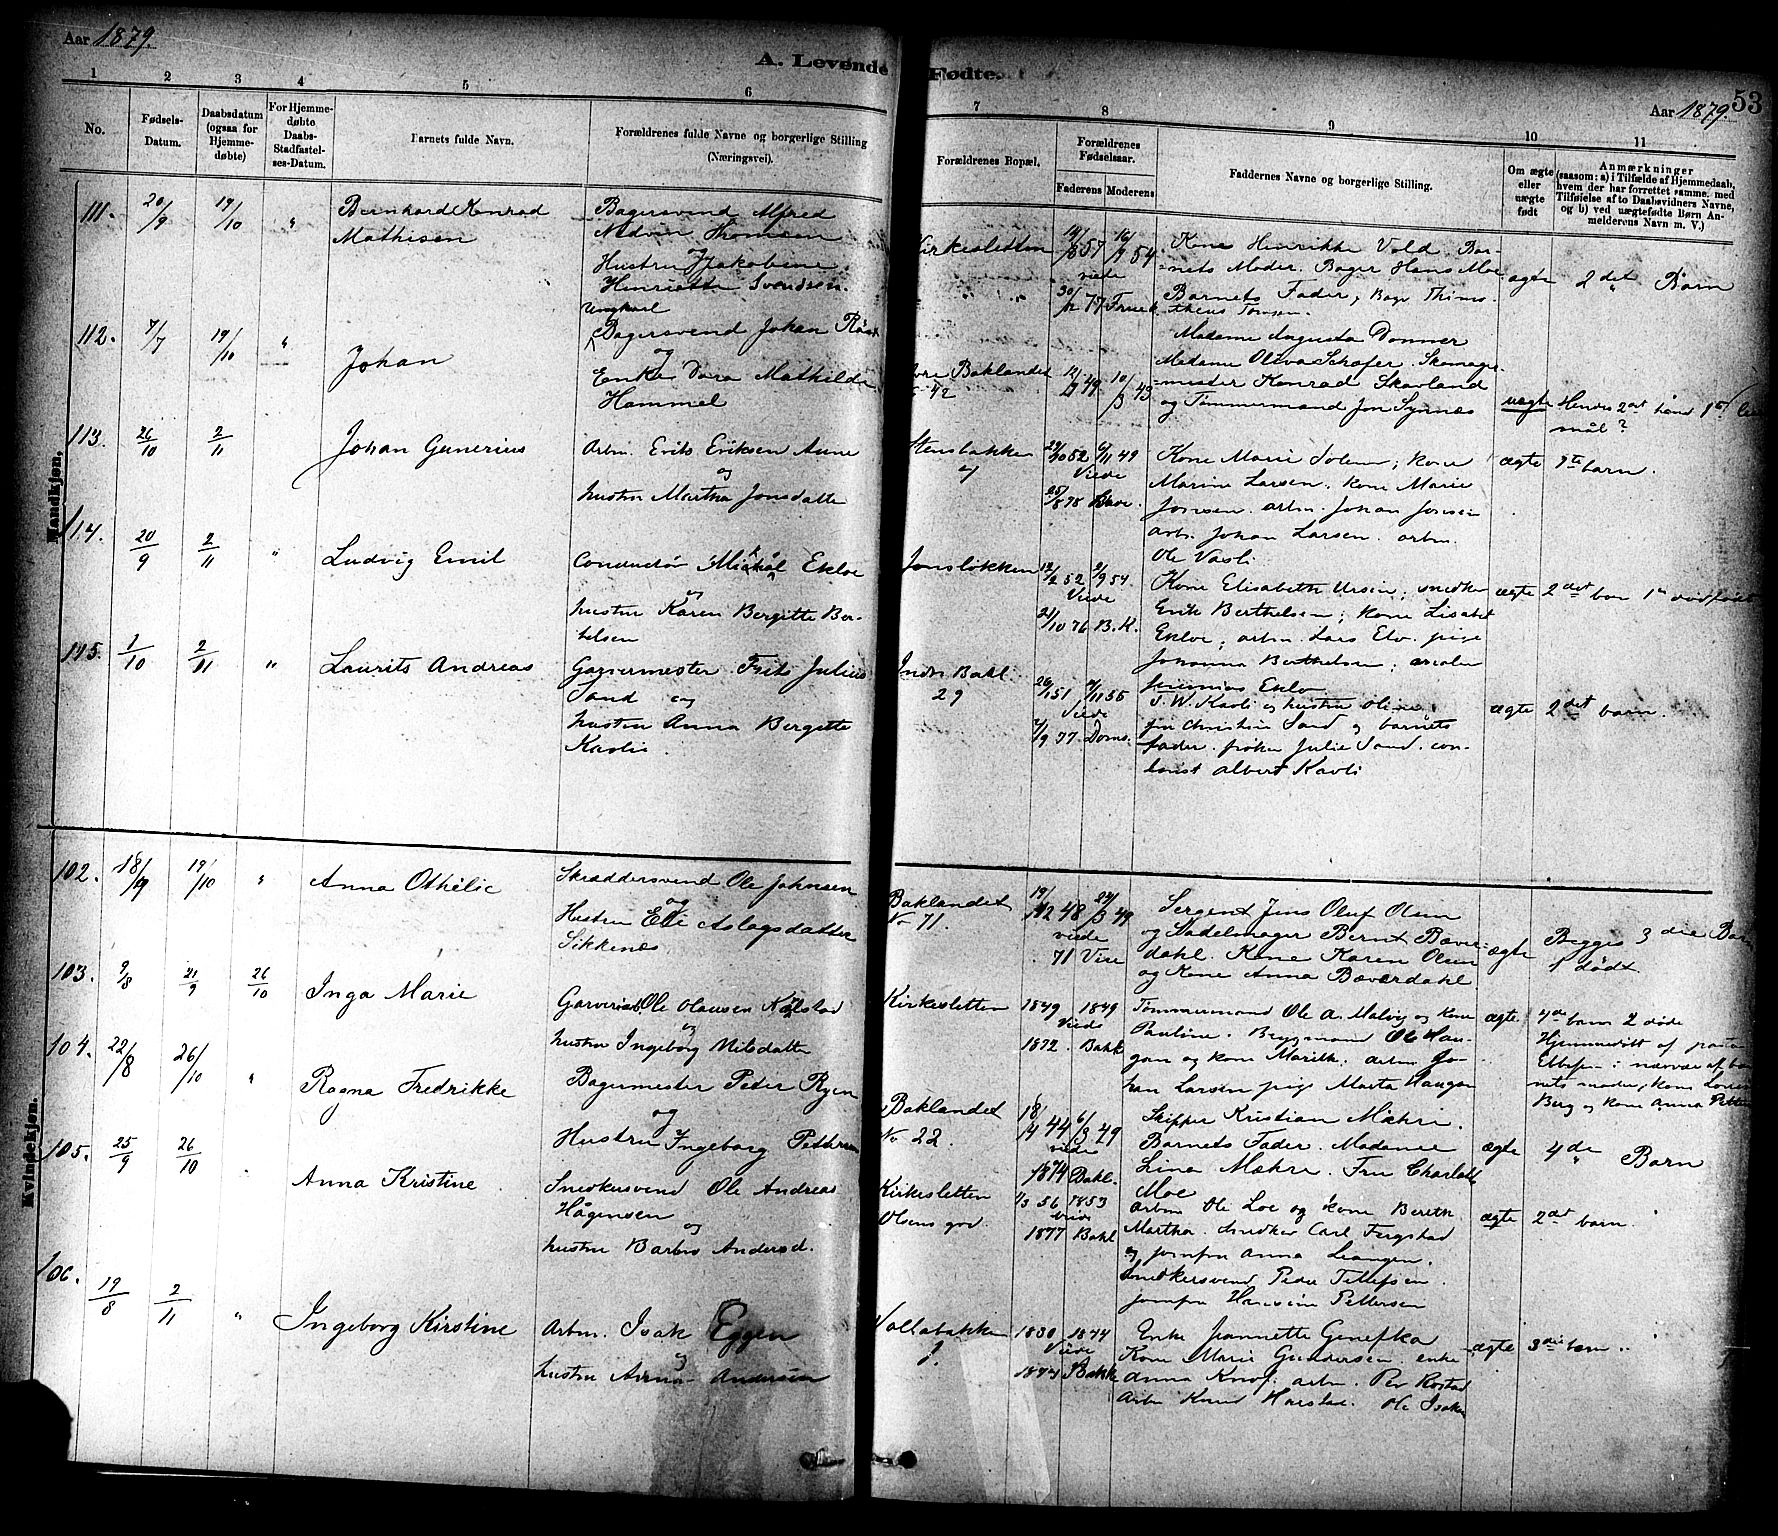 Aar 1879.
A. Levende Fødte.
53
Aar 1879.
1 2 3 4 5 6 7 8 9 10 11
No.
Fødsels-
Datum.
Daabsdatum
(ogsaa for
Hjemme-
døbte)
For Hjemme-
døbte
Daabs-
Stadfæstel-
ses-Datum.
Barnets fulde Navn.
Forældrenes fulde Navne og borgerlige Stilling
(Næringsvei).
Forældrenes Bopæl.
Forældrenes
Fødselsaar.
Faderens Moderens
Faddernes Navne og borgerlige Stilling.
Om ægte
eller
uægte
født
Anmærkninger
(saasom: a) i Tilfælde af Hjemmedaab,
hvem der har forrettet samme, med
Tilføielse af to Daabsvidners Navne,
og b) ved uægtefødte Børn An-
melderens Navn m. V.)
Mandkjøn.
111. 20/9 19/10 "
Bernhard Konrad
Mathisen
Bagersvend Alfred
Thomsen
og
Hustru Jakobine
Henriette Svendsen.
Kirkesletten
57 16/9 54
viede
30/12 77
Kone Henrikke Vold. Bar-
nets Moder. Bager Hans Moe
Barnets Fader, Bager Thimo-
theus Tomsen.
ægte
2det Barn
112. 7/7 19/10 "
Johan
Ungkarl
Bagersvend Johan
og
Enke Dora Mathilde
Hammel
Øvre Baklandet
42
49 10/3 43
Madame Augusta Donner
Madame Oliva Schafer Skomager-
mester Konrad Skavland
og Tømmermand Jon
uægte
Hendes 2det hans 1ste
mål?
113. 26/10 2/11
Johan Gunerius
Arbm. Erik Eriksen Aune
og
hustru Martha Jonsdatter
Stensbakken
29/10 52 6/11 49
Viede
25/8 78 Bakl.
Kone Marie Solem; kone
Marine Larsen; kone Marie
Jonsen. arbm. Johan Jonsen
arb. Johan Larsen. arbm.
Ole Vasli
ægte
1ste barn.
114. 20/9 2/11 "
Ludvig Emil
Conductør Mickal Ekloe
og
hustru Karen Bergitte Ber-
telsen
Jonsløkken
12/2 52 2/9 54.
Viede
21/10 76 B.K.
Kone Elisabeth Ursin; snedker
Erik Berthelsen; kone Lisabet
Ekloe; arbm Lars Elv. pige
Johanna Berthelsen; arbeider
Jeremias Eklo
ægte
2det barn 1ste dødfødt
115. 1/10 2/11 "
Laurits Andreas
Garvermester Frits Julius
Sand og
hustru Anna Bergitte
Kavli.
Indr. Bakl.
29
26/1 51 9/11 55
Viede
7/9 77 Domk.
T. W. Kavli og hustru Oline
frø Christine Sand og barnets
fader. frøken Julie Sand. con-
torist Albert Kavli
ægte
2det barn.
Kvindekjøn.
102. 18/9 19/10 "
Anna Othelie
Skræddersvend Ole Johnsen
og
Hustru Eli Aslagsdatter
Sikkenes
Baklandet
No 71.
19/12 48 24/3 49
viede
71 Vise
Sergent Jens Oluf Olsen
og Sadelmager Bernt Bæver-
dahl. Kone Karen Olsen
og Kone Anna Bæverdahl
ægte
Begges 3die Barn
1 dødt
103. 9/8 21/9 26/10
Inga Marie
Garversv. Ole Olausen Kalstad
og
hustru Ingeborg Nilsdatter
Kirkesletten
1849 1849
Viede
1872. Bakk
Tømmermand Ole A. Malvig og kone
Pauline. Bygmand Ole Hau-
gan og kone Marith. arbm Jo-
han Larsen pige Marta Haugan
ægte.
4de barn 2 døde
Hjemmedøbt af pastor
Ellefsen i nærvær af bar-
nets moder; kone Lovise
Berg og kone Anna Petter
104. 22/8 26/10 "
Ragna Fredrikke
Bagermester Peter Ryen
og
Hustru Ingeborg Pettersen
Baklandet
No 22.
44 6/3 49
viede
1874 Bakl.
Skipper Kristian Mæhre.
Barnets Fader. Madame
Lina Mæhre. Fru Charlotte
Moe
ægte
4de Barn
105. 25/9 26/10
Anna Kristine
Snedkersvend Ole Andreas
Hågensen
og
hustru Barbro Andersd.
Kirkesletten
Olsens grd.
1/3 56 1853
viede
1877 Bakl
Arbm Ole Loe og kone Bereth
Martha. Snedker Carl Fergstad
og jomfru Anna Leangen.
Snedkersvend Peder Tellefsen.
jomfru Hansine Pettersen
ægte
2det barn.
106. 19/8 2/11 "
Ingeborg Kirstine
Arbm. Isak Eggen
og
hustru Anna Andersen
Vollabakken
1.
1830 1844
Viede
1874 Bakke
Enke Jeannette Genefka
Kone Marie Gundersen. enke
Anna Knof. arbm. Per Rostad
Arbm Knud Harstad. Ole Isaksen
ægte
3die barn.